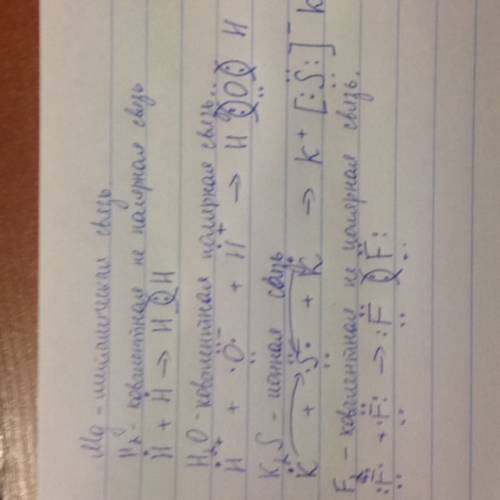 Mg - металическая связь
H₂ - ковалентная не полярная связь
Ḣ + Ḣ → H : H
H₂O - ковалентная полярная связь
H + · O · + H → H : O : H
K₂S - ионная связь
K + · S · + K → K⁺ [: S :]⁻ K
F₂ - ковалентная не полярная связь.
: F · + · F : → : F : F :